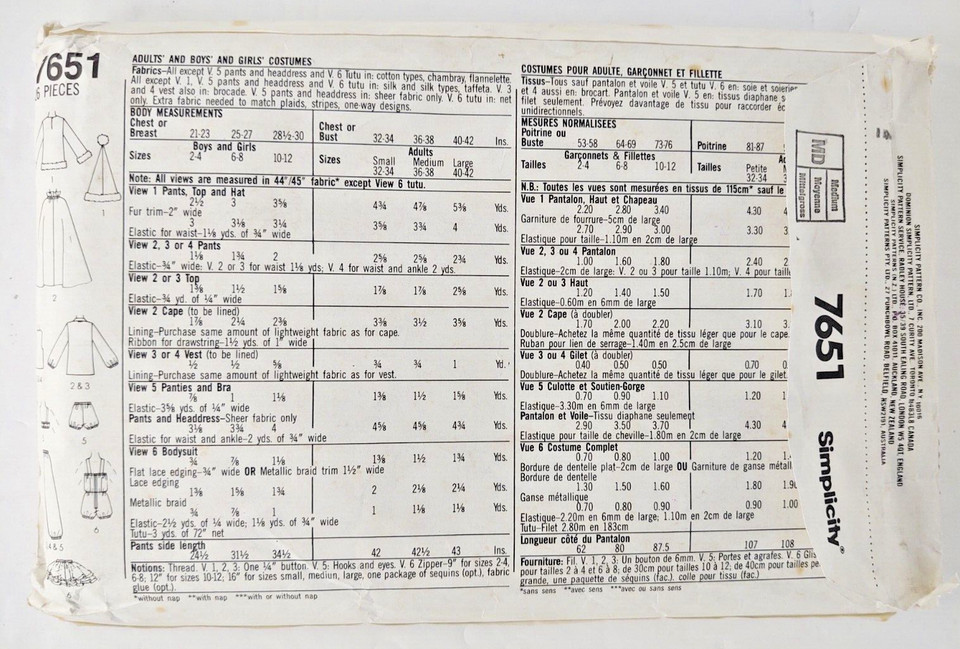 7651
6 PIECES
1
2
2 & 3
5
6
4 & 5
6
ADULTS' AND BOYS' AND GIRLS' COSTUMES
Fabrics-All except V. 5 pants and headdress and V. 6 Tutu in: cotton types, chambray, flannelette.
All except V. 1, V. 5 pants and headdress and V. 6 tutu in: silk and silk types, taffeta. V. 3
and 4 vest also in: brocade. V. 5 pants and headdress in: sheer fabric only. V. 6 tutu in: net
only. Extra fabric needed to match plaids, stripes, one-way designs.
BODY MEASUREMENTS
Chest or
Breast 21-23 25-27 28½-30 Chest or Bust 32-34 36-38 40-42 Ins.
Boys and Girls Adults
Sizes 2-4 6-8 10-12 Sizes Small Medium Large
32-34 36-38 40-42
Note: All views are measured in 44"/45" fabric* except View 6 tutu.
View 1 Pants, Top and Hat
2½ 3 3⅝ 4¾ 4⅞ 5⅜ Yds.
Fur trim-2" wide
3 3⅛ 3¼ 3⅝ 3¾ 4 Yds.
Elastic for waist-1⅛ yds. of ¾" wide
View 2, 3 or 4 Pants
1⅛ 1¾ 2 2⅝ 2⅝ 2¾ Yds.
Elastic-¾" wide: V. 2 or 3 for waist 1⅛ yds; V. 4 for waist and ankle 2 yds.
View 2 or 3 Top
1⅜ 1½ 1⅝ 1⅞ 1⅞ 2⅝ Yds.
Elastic-¾ yd. of ¼" wide
View 2 Cape (to be lined)
1⅞ 2¼ 2⅜ 3⅜ 3½ 3⅝ Yds.
Lining-Purchase same amount of lightweight fabric as for cape.
Ribbon for drawstring-1½ yds. of 1" wide
View 3 or 4 Vest (to be lined)
½ ½ ⅝ ¾ ¾ 1 Yd.
Lining-Purchase same amount of lightweight fabric as for vest.
View 5 Panties and Bra
⅞ 1 1⅛ 1⅜ 1½ 1⅝ Yds.
Elastic-3⅝ yds. of ¼" wide
Pants and Headdress-Sheer fabric only
3⅛ 3¾ 4 4⅝ 4⅝ 4¾ Yds.
Elastic for waist and ankle-2 yds. of ¾" wide
View 6 Bodysuit
¾ ⅞ 1⅛ 1⅜ 1½ 1¾ Yds.
Flat lace edging-¾" wide OR Metallic braid trim 1½" wide
Lace edging
1⅜ 1⅝ 1¾ 2 2⅛ 2¼ Yds.
Metallic braid
¾ ⅞ 1 1 1⅛ 1⅛ Yds.
Elastic-2½ yds. of ¼ wide; 1⅛ yds. of ¾" wide
Tutu-3 yds. of 72" net
Pants side length
24½ 31½ 34½ 42 42½ 43 Ins.
Notions: Thread. V. 1, 2, 3: One ¾" button. V. 5: Hooks and eyes. V. 6 Zipper-9" for sizes 2-4,
6-8; 12" for sizes 10-12; 16" for sizes small, medium, large, one package of sequins (opt.), fabric
glue (opt.).
*without nap **with nap ***with or without nap
COSTUMES POUR ADULTE, GARÇONNET ET FILLETTE
Tissus-Tous sauf pantalon et voile V. 5 et tutu V. 6 en: soie et soieries
et 4 aussi en: brocart. Pantalon et voile V. 5 en: tissus diaphane s
filet seulement. Prévoyez davantage de tissu pour raccorder éc
unidirectionnels.
MESURES NORMALISEES
Poitrine ou
Buste 53-58 64-69 73-76 Poitrine 81-87
Garçonnets & Fillettes
Tailles 2-4 6-8 10-12 Tailles Petite
32-34
N.B.: Toutes les vues sont mesurées en tissus de 115cm* sauf le
Vue 1 Pantalon, Haut et Chapeau
2.20 2.80 3.40 4.30
Garniture de fourrure-5cm de large
2.70 2.90 3.00 3.30
Elastique pour taille-1.10m en 2cm de large
Vue 2, 3 ou 4 Pantalon
1.00 1.60 1.80 2.40
Elastique-2cm de large: V. 2 ou 3 pour taille 1.10m; V. 4 pour taill
Vue 2 ou 3 Haut
1.20 1.40 1.50 1.70
Elastique-0.60m en 6mm de large
Vue 2 Cape (à doubler)
1.70 2.00 2.20 3.10
Doublure-Achetez la même quantité de tissu léger que pour le cape.
Ruban pour lien de serrage-1.40m en 2.5cm de large
Vue 3 ou 4 Gilet (à doubler)
0.40 0.50 0.50 0.70
Doublure-Achetez la même quantité de tissu léger que pour le gilet.
Vue 5 Culotte et Soutien-Gorge
0.70 0.90 1.10 1.20
Elastique-3.30m en 6mm de large
Pantalon et Voile-Tissu diaphane seulement
2.90 3.50 3.70 4.30
Elastique pour taille de cheville-1.80m en 2cm de large
Vue 6 Costume Complet
0.70 0.80 1.00 1.20
Bordure de dentelle plat-2cm de large OU Garniture de ganse métall
Bordure de dentelle
1.30 1.50 1.60 1.80 1.90
Ganse métallique
0.70 0.80 0.90 0.90 1.00
Elastique-2.20m en 6mm de large; 1.10m en 2cm de large
Tutu-Filet 2.80m en 183cm
Longueur côté du Pantalon
62 80 87.5 107 108
Fourniture: Fil. V. 1, 2, 3: Un bouton de 6mm. V. 5: Portes et agrafes. V. 6 Glis
pour tailles 2 à 4 et 6 à 8; de 30cm pour tailles 10 à 12; de 40cm pour tailles pe
grande, une paquette de séquins (fac.) colle pour tissu (fac.)
*sans sens **avec sens ***avec ou sans sens
MD
Medium
Moyenne
Mittelgross
7651
Simplicity®
SIMPLICITY PATTERN CO. INC. 200 MADISON AVE. N.Y. 10016
DOMINION SIMPLICITY PATTERN LTD. 7 CURITY AVE. TORONTO M4B3L8 CANADA
SIMPLICITY PATTERN SERVICE, RADLEY HOUSE, 35-39 SOUTH EALING ROAD, LONDON W5 4QE, ENGLAND
SIMPLICITY PATTERNS (N.Z.) LTD. P.O. BOX AUCKLAND, NEW ZEALAND
SIMPLICITY PATTERNS PTY. LTD., 27 PUNCHBOWL ROAD, BELFIELD, NSW2191, AUSTRALIA